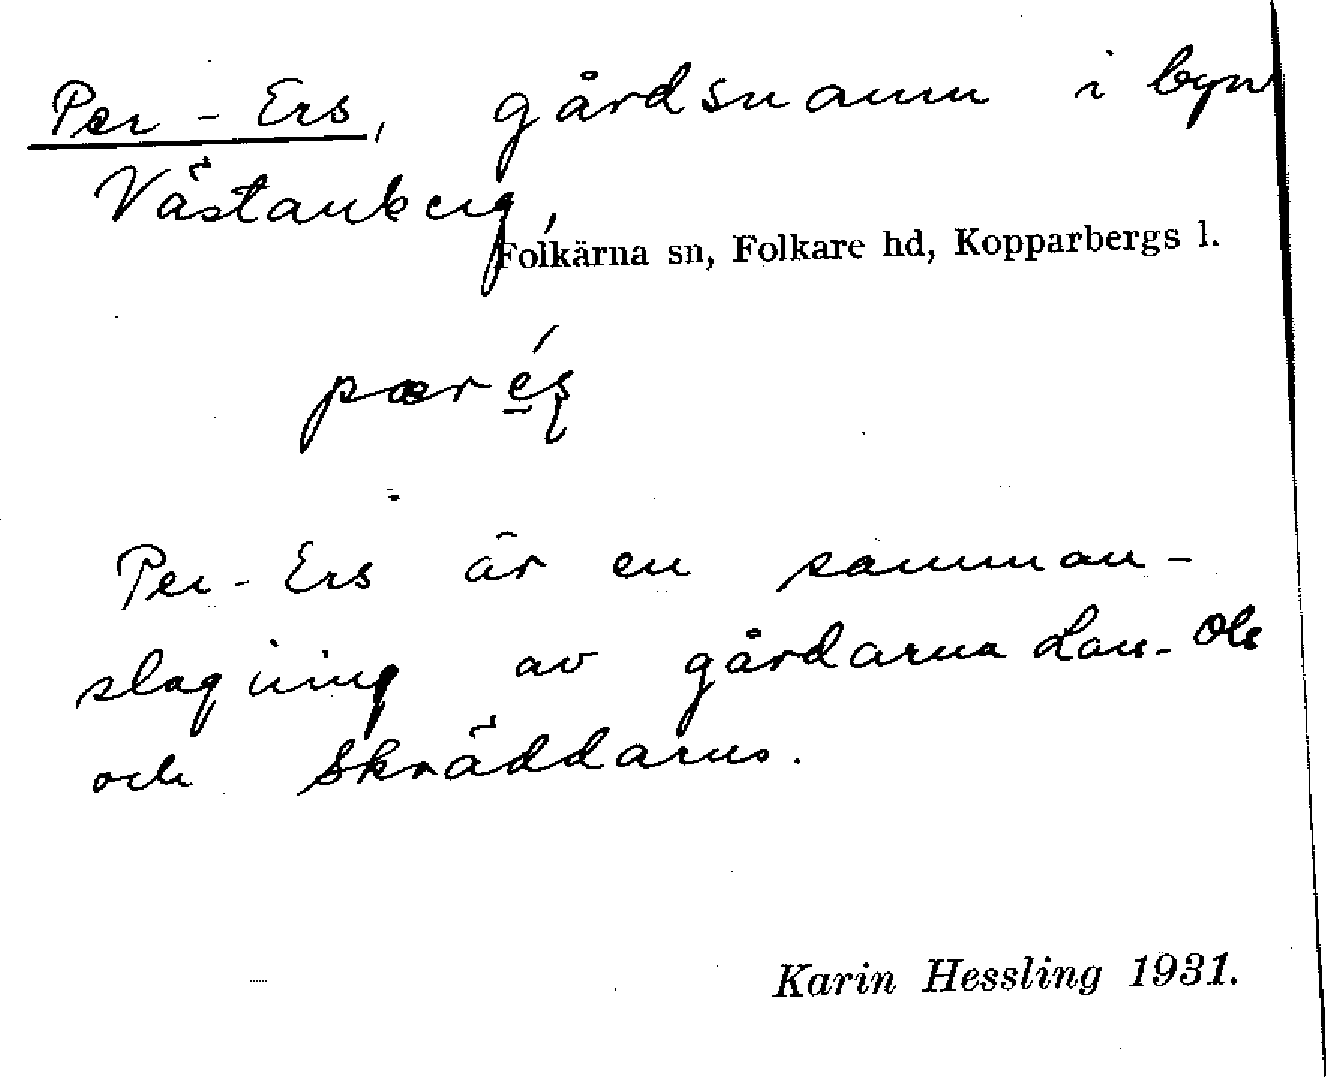 Per-Ers, gårdsnamn i byn
Västanberg,
Folkärna sn, Folkare hd, Kopparbergs l.
pær
Per-Ers är en samman-
slagning av gårdarna Lars-Ols
och Skräddarns.
Karin Hessling 1931.